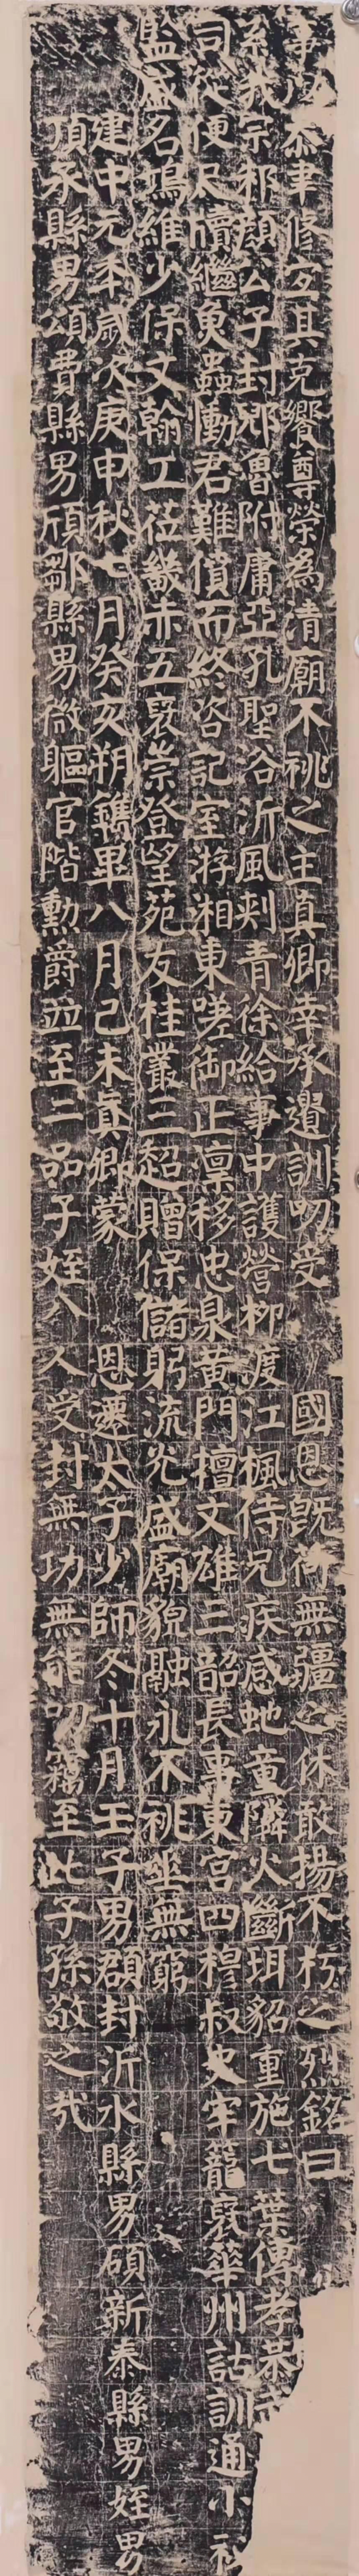 泰聿修宜其克饗尊榮為清廟不祧之主真卿幸承遺訓叨受 國恩既荷無疆之休敢揚不朽之烈銘曰
系我宗邾顏公子封郳魯附庸亞孔聖洽沂風刺青徐給事中護營柳渡江楓侍兄疾感虵童隣火斷珥貂重施七葉傳孝恭
司從使尺牘繼臾蟲慟君難僨而終咨記室游相東嗟御正凜移忠臬黃門擅文雄三韶長事東宮四穆叔史牢籠裒華州詁訓通小秘
監盛名鴻維少保文翰工莅畿赤五裒崇登望苑友桂叢三超贈保儲躬流光盛廟貌融永不祧垂無窮
建中元年歲次庚申秋七月癸亥朔鐫畢八月己未真卿蒙 恩遷大子少師冬十月壬子男頵封沂水縣男碩新泰縣男姪男
頂承縣男頌費縣男頎鄒縣男微軀官階勳爵並至二品子姪八人受封無功無能叨竊至此子孫敬之哉